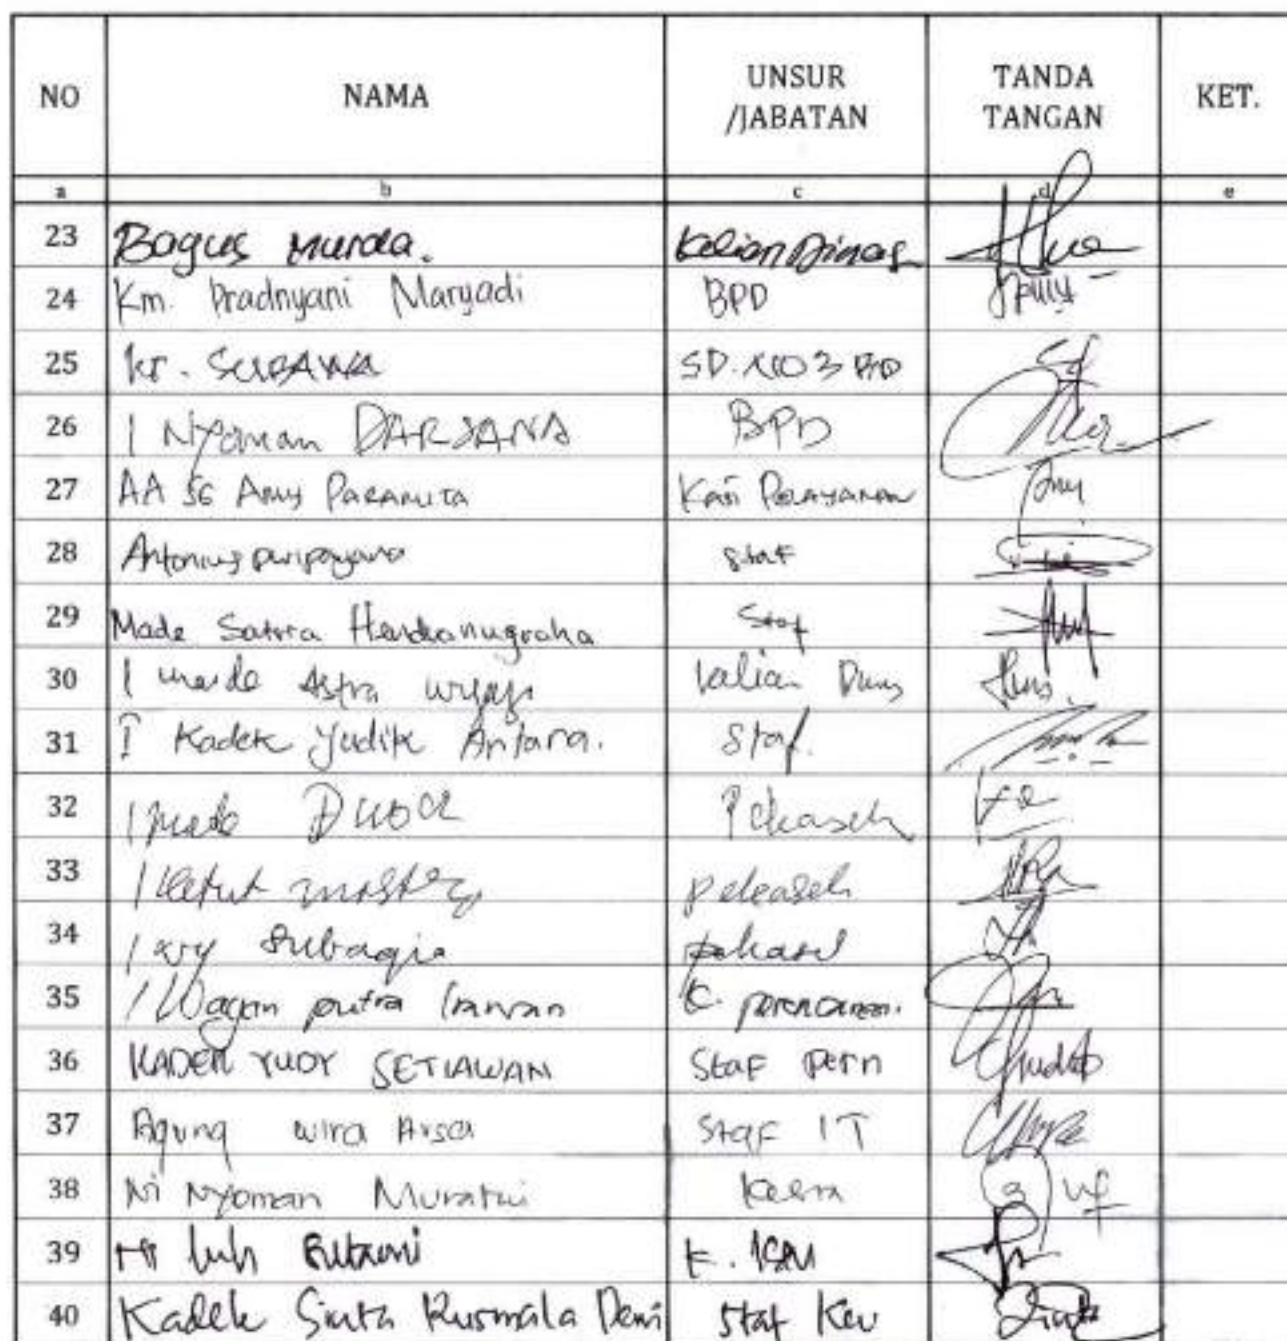 NO NAMA UNSUR /JABATAN TANDA TANGAN KET.
a b c d e
23 Bagus Murda. Kelian Dinas
24 Km. Pradnyani Maryadi BPD
25 Kt. SUBAWA SD. NO 3
26 I Nyoman DARSANA BPD
27 AA SG Anny PARAMITA Kasi PELAYANAN
28 Antonius staf
29 Made Satria Hendranugraha Staf
30 I Made Astra Wijaya Kelian Dinas
31 I Kadek Yudik Antara. Staf.
32 I Made Pekaseh
33 I Ketut Pekaseh
34 I Wy Subagia Pekaseh
35 I Wayan putra Irawan K. perencanaan.
36 KADEK YUDY SETIAWAN Staf pern
37 Agung wira Arsa Staf IT
38 Ni Nyoman Muratni Kesra
39 Ni luh Sutrami K. KEU
40 Kadek Sinta Kusmala Dewi Staf Keu